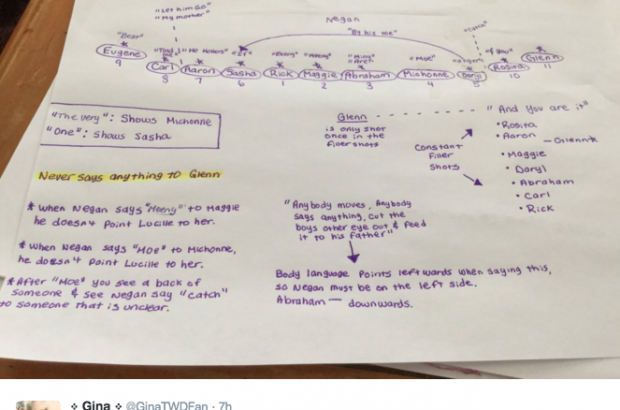 "Let him Go"
"My mother"
Negan
"By his toe"
"catch"
"Dear"
"He Hollers"
"If"
"Eeny"
"Meeny"
"Miny"
"MOE"
"If you"
Eugene Carl Aaron Sasha Rick Maggie Abraham Michonne Daryl Rosita Glenn
9 8 7 6 1 2 3 4 5 10 11
"The very": Shows Michonne
"One": Shows Sasha
Never says anything to Glenn
* When Negan says "Meeny" to Maggie
he doesn't Point Lucille to her.
* When Negan says "MOE" to Michonne,
he doesn't Point Lucille to her.
* After "MOE" you see a back of
someone & see Negan say "Catch"
to someone that is unclear.
Glenn
is only shot
once in the
filler shots
Constant
Filler
Shots
"And You are it"
• Rosita
• Aaron
• Maggie
• Daryl
• Abraham
• Carl
• Rick
"Anybody moves, Anybody
says anything, cut the
boys other eye out & feed
it to his father"
Body language Points leftwards when saying this,
so Negan must be on the left side.
Abraham — downwards.
Gina @GinaTWDFan · 7h